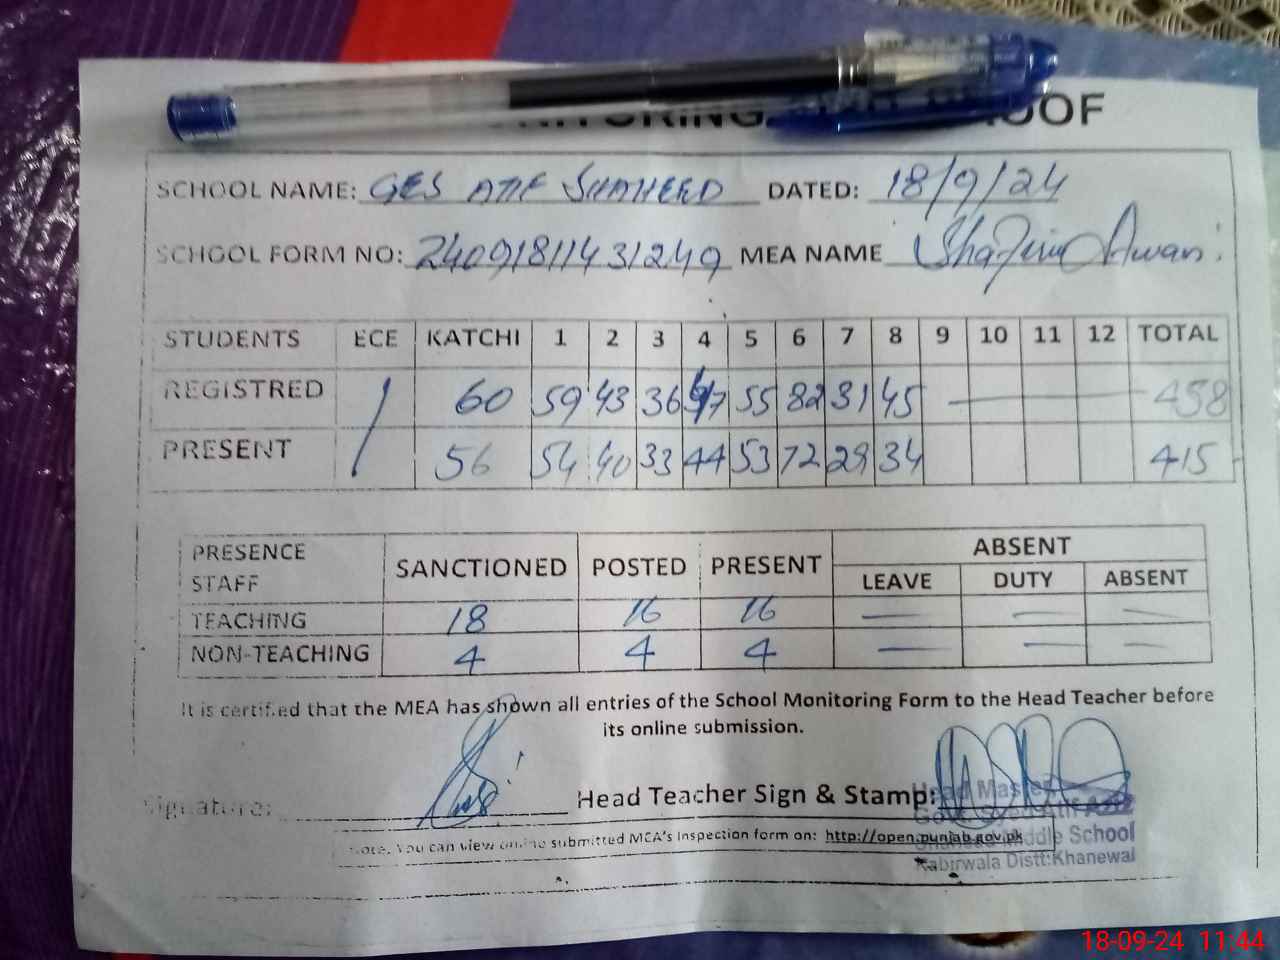 NITORING OOF
SCHOOL NAME: GES ATIF SHAHEED DATED: 18/9/24
SCHOOL FORM NO: 24091811431249 MEA NAME Awan
STUDENTS ECE KATCHI 1 2 3 4 5 6 7 8 9 10 11 12 TOTAL
REGISTRED 60 59 43 36 47 55 82 31 45 458
PRESENT 56 54 40 33 44 53 72 29 34 415
PRESENCE STAFF SANCTIONED POSTED PRESENT ABSENT
LEAVE DUTY ABSENT
TEACHING 18 16 16 — — —
NON-TEACHING 4 4 4 — — —
It is certified that the MEA has shown all entries of the School Monitoring Form to the Head Teacher before
its online submission.
Signature: Head Teacher Sign & Stamp:
Head Master
Govt. Syed Atif
Shaheed Middle School
Kabirwala Distt:Khanewal
Note. You can view online submitted MEA's Inspection form on: http://open.punjab.gov.pk
18-09-24 11:44